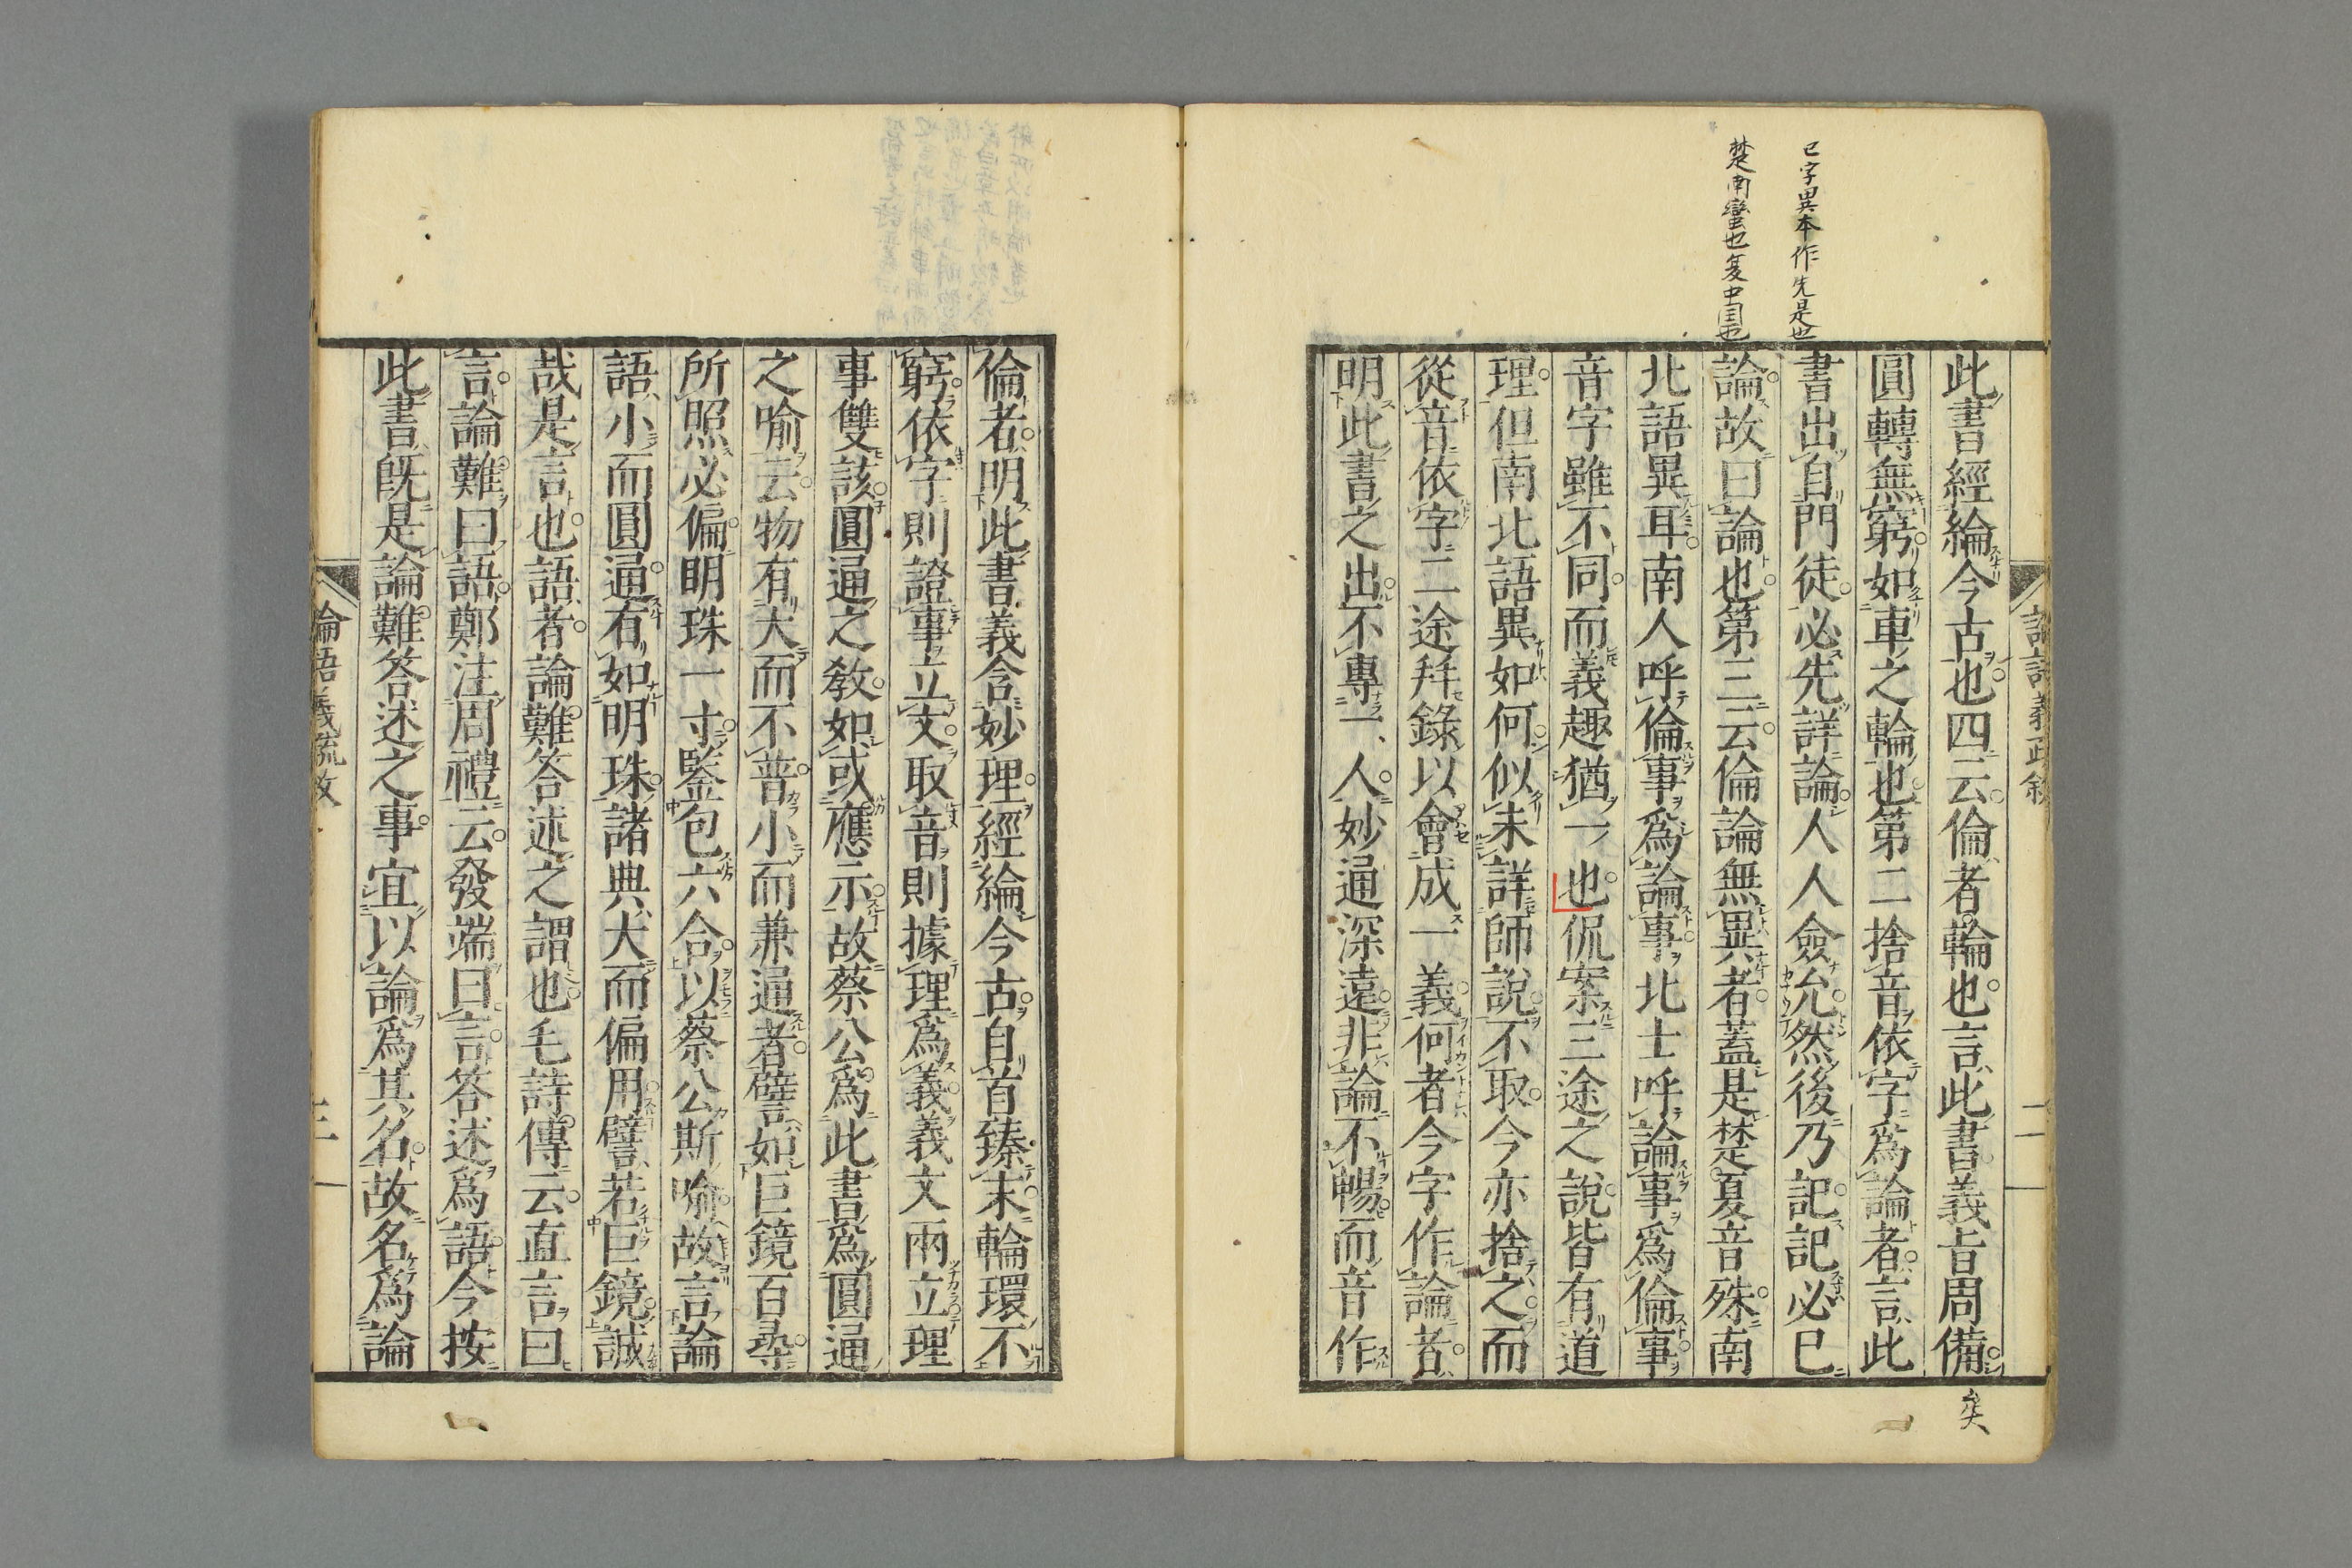 已字異本作先是也
楚南蠻也夏中国也
論語義疏敘
二
此書經綸今古也四云倫者輪也言此書義旨周備
矣
圓轉無窮如車之輪也第二捨音依字爲論者言此
書出自門徒必先詳論人人僉允然後乃記記必已
論故曰論也第三云倫論無異者蓋是楚夏音殊南
北語異耳南人呼倫事爲論事北士呼論事爲倫事
音字雖不同而義趣猶一也侃案三途之說皆有道
理但南北語異如何似未詳師說不取今亦捨之而
從音依字二途拜錄以會成一義何者今字作論者
明此書之出不專一人妙通深遠非論不暢而音作
倫者明此書義含妙理經綸今古自首臻末輪環不
窮依字則證事立文取音則據理爲義義文兩立理
事雙該圓通之教如或應示故蔡公爲此書爲圓通
之喻云物有大而不普小而兼通者譬如巨鏡百尋
所照必偏明珠一寸鑒包六合以蔡公斯喻故言論
語小而圓通有如明珠諸典大而偏用譬若巨鏡誠
哉是言也語者論難答述之謂也毛詩傳云直言曰
言論難曰語鄭注周禮云發端曰言答述爲語今按
此書既是論難答述之事宜以論爲其名故名爲論
論語義疏敘
三